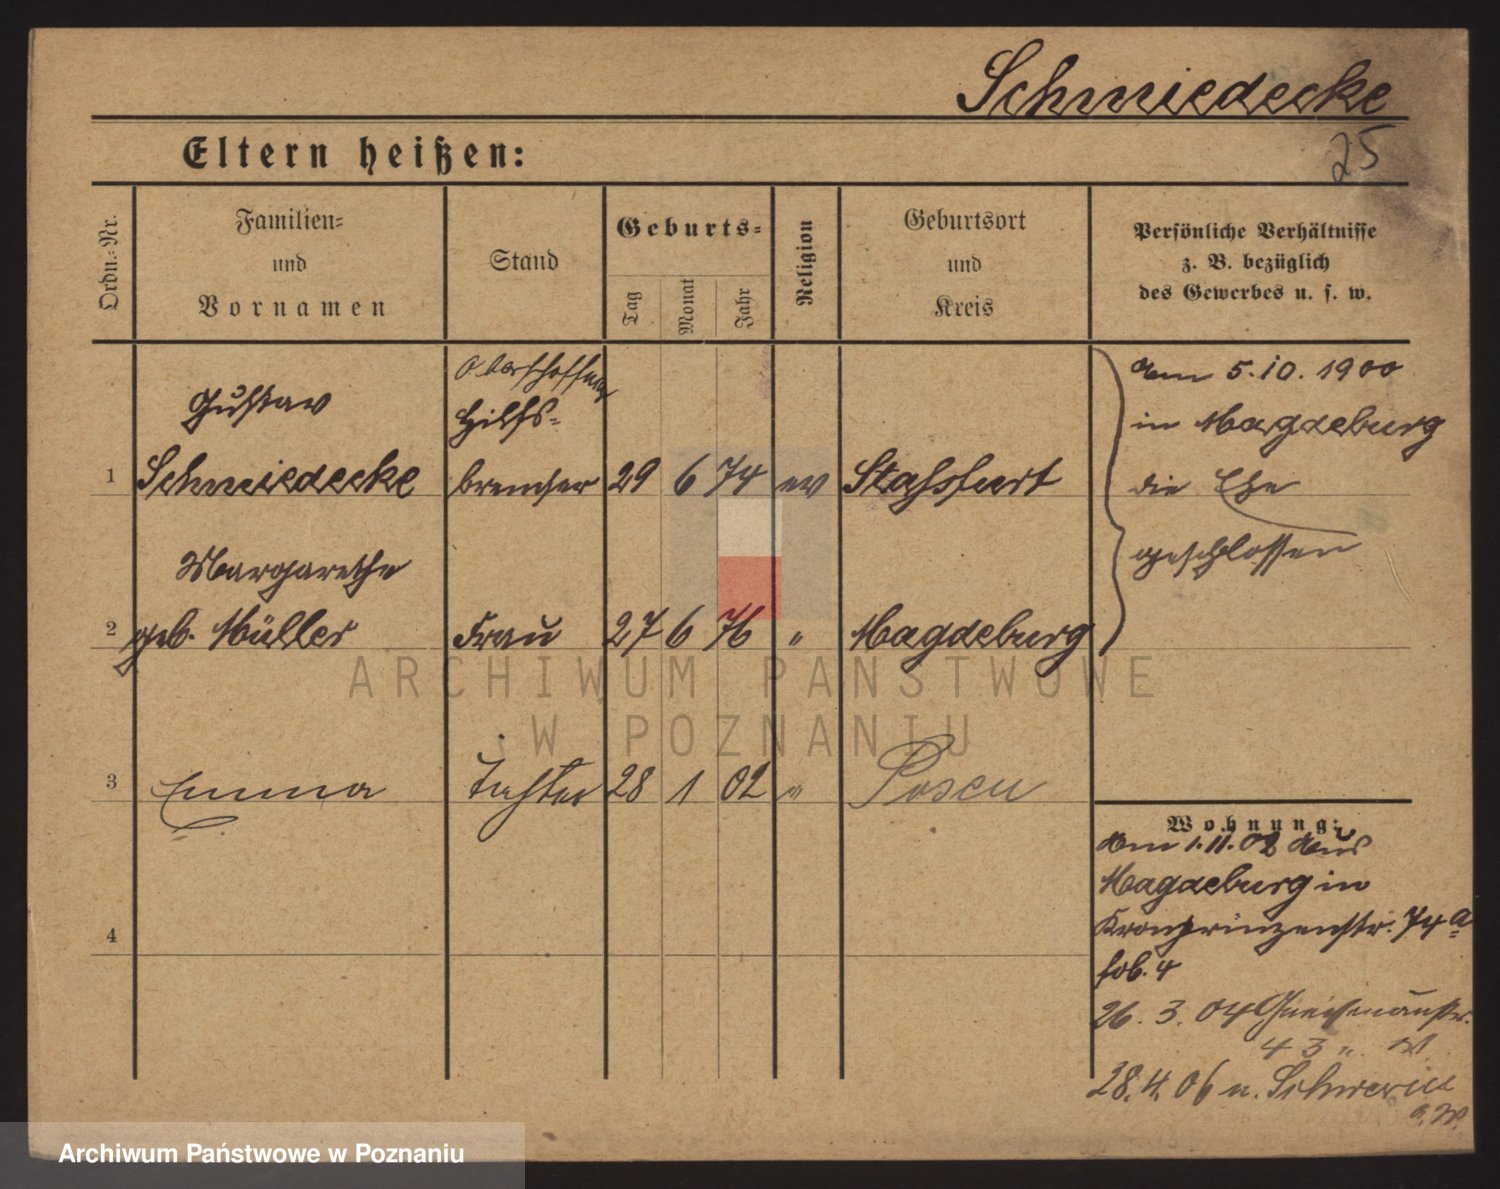 Schmiedecke
25
Eltern heißen:
Ordn.-Nr.
Familien-
und
Vornamen
Stand
Geburts-
Tag
Monat
Jahr
Religion
Geburtsort
und
Kreis
Persönliche Verhältnisse
z. B. bezüglich
des Gewerbes u. s. w.
Gustav
Hilfs-
1 Schmiedecke bremser 29 6 74 ev Stassfurt
am 5.10.1900
in Magdeburg
die Ehe
geschlossen
Margarethe
2 geb. Müller Frau 27 6 76 " Magdeburg
3 Emma Tochter 28 1 02 " Posen
4
Wohnung:
am 1.11.02 aus
Magdeburg in
Kronprinzenstr. 74a
26.3.04 Gneisenaustr.
43
28.4.06 n. Schwerin
a.W.
ARCHIWUM PAŃSTWOWE
W POZNANIU
Archiwum Państwowe w Poznaniu